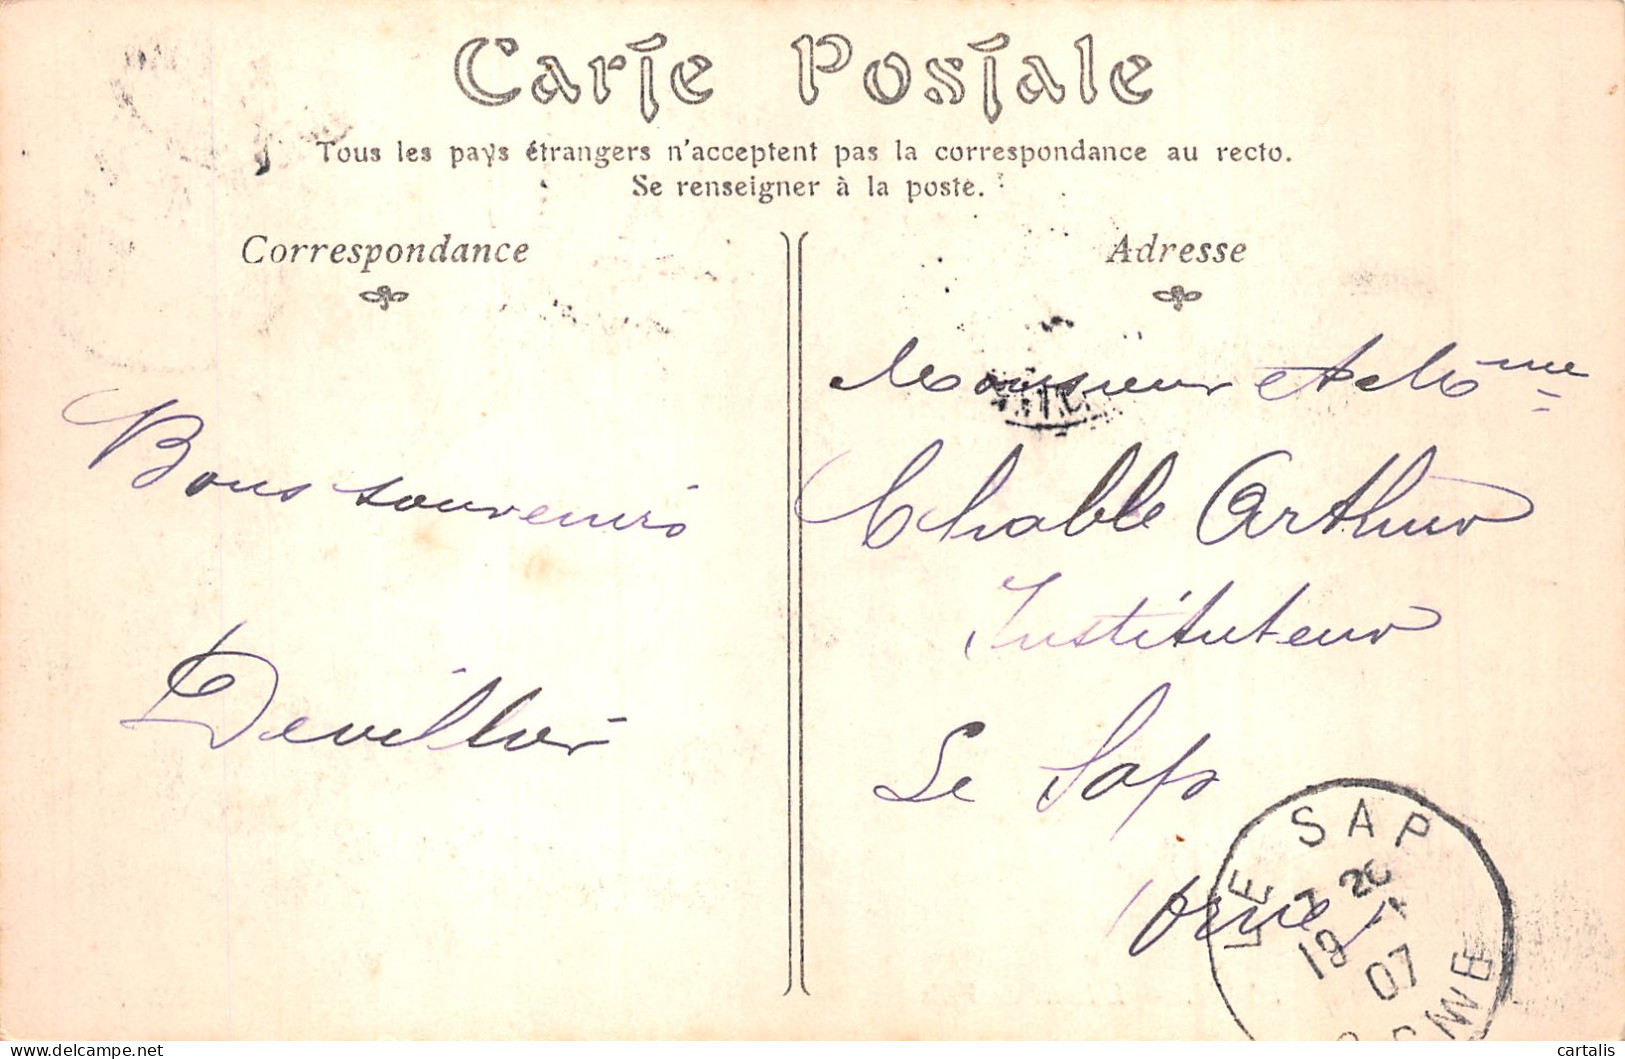 Carte Postale
Tous les pays étrangers n'acceptent pas la correspondance au recto.
Se renseigner à la poste.
Correspondance
Adresse
Bons souvenirs
Devillier
Monsieur et Mme
Chable Arthur
Instituteur
Le Sap
Orne
LE SAP
19
07
ORNE
cartalis